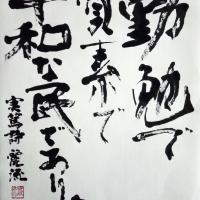 勤勉で
質素で
平和な民であり
実篤詩 麗流